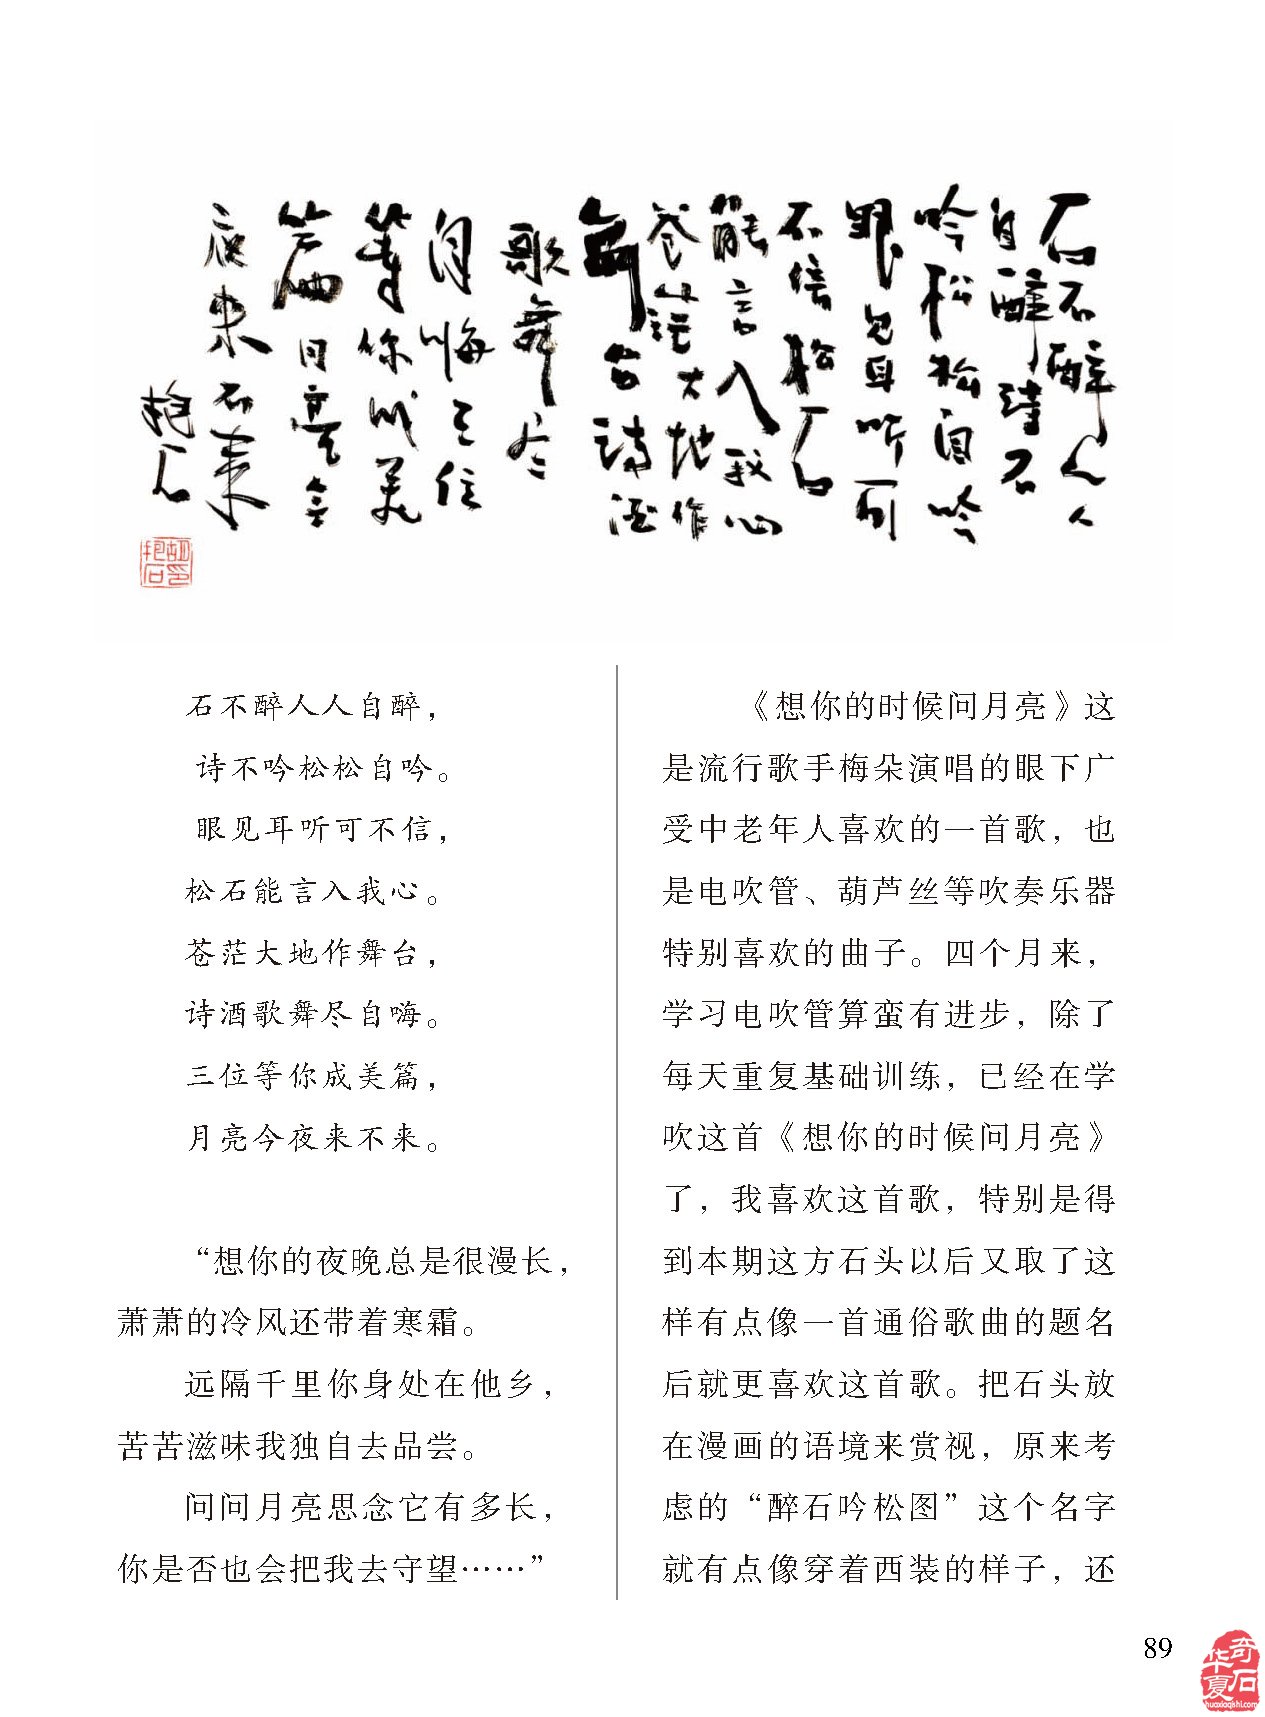 石不醉人人
自醉诗不
吟松松自吟
眼见耳听可
不信松石
能言入我心
苍茫大地作
舞台诗酒
歌舞尽
自嗨三位
等你成美
篇月亮今
夜来不来
抱石
胡印抱石
石不醉人人自醉，
诗不吟松松自吟。
眼见耳听可不信，
松石能言入我心。
苍茫大地作舞台，
诗酒歌舞尽自嗨。
三位等你成美篇，
月亮今夜来不来。
“想你的夜晚总是很漫长，
萧萧的冷风还带着寒霜。
远隔千里你身处在他乡，
苦苦滋味我独自去品尝。
问问月亮思念它有多长，
你是否也会把我去守望……”
《想你的时候问月亮》这
是流行歌手梅朵演唱的眼下广
受中老年人喜欢的一首歌，也
是电吹管、葫芦丝等吹奏乐器
特别喜欢的曲子。四个月来，
学习电吹管算蛮有进步，除了
每天重复基础训练，已经在学
吹这首《想你的时候问月亮》
了，我喜欢这首歌，特别是得
到本期这方石头以后又取了这
样有点像一首通俗歌曲的题名
后就更喜欢这首歌。把石头放
在漫画的语境来赏视，原来考
虑的“醉石吟松图”这个名字
就有点像穿着西装的样子，还
89
华夏奇石
huaxiaqishi.com